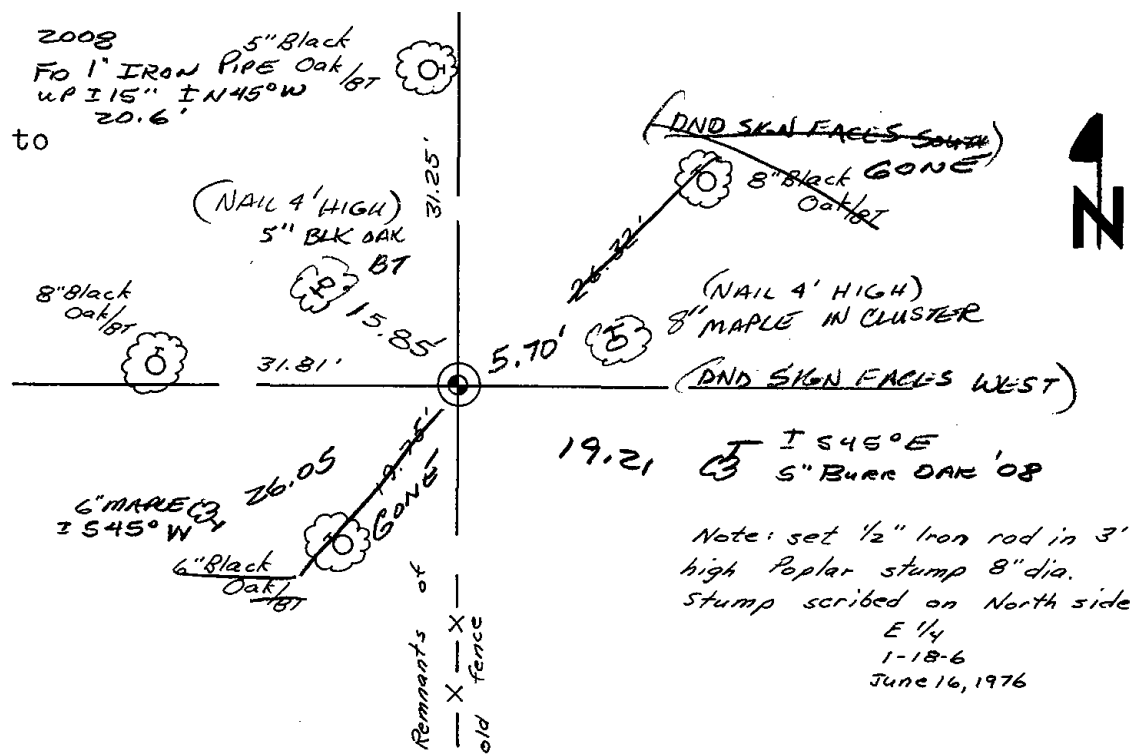 2008
FD 1" IRON PIPE
UP I 15" I N45°W
20.6'
to
5" Black
Oak/BT
31.25'
(DND SIGN FACES SOUTH)
GONE
8" Black
Oak/BT
26.32'
N
(NAIL 4' HIGH)
5" BLK OAK
BT
15.85'
8" Black
Oak/BT
31.81'
5.70'
(NAIL 4' HIGH)
8" MAPLE IN CLUSTER
(DND SIGN FACES WEST)
19.21
I S45°E
5" BURR OAK '08
19.75'
GONE
26.05
6" MAPLE
I S45°W
6" Black
Oak/BT
Remnants of
old fence
Note: set 1/2" Iron rod in 3'
high Poplar stump 8" dia.
Stump scribed on North side
E 1/4
1-18-6
June 16, 1976